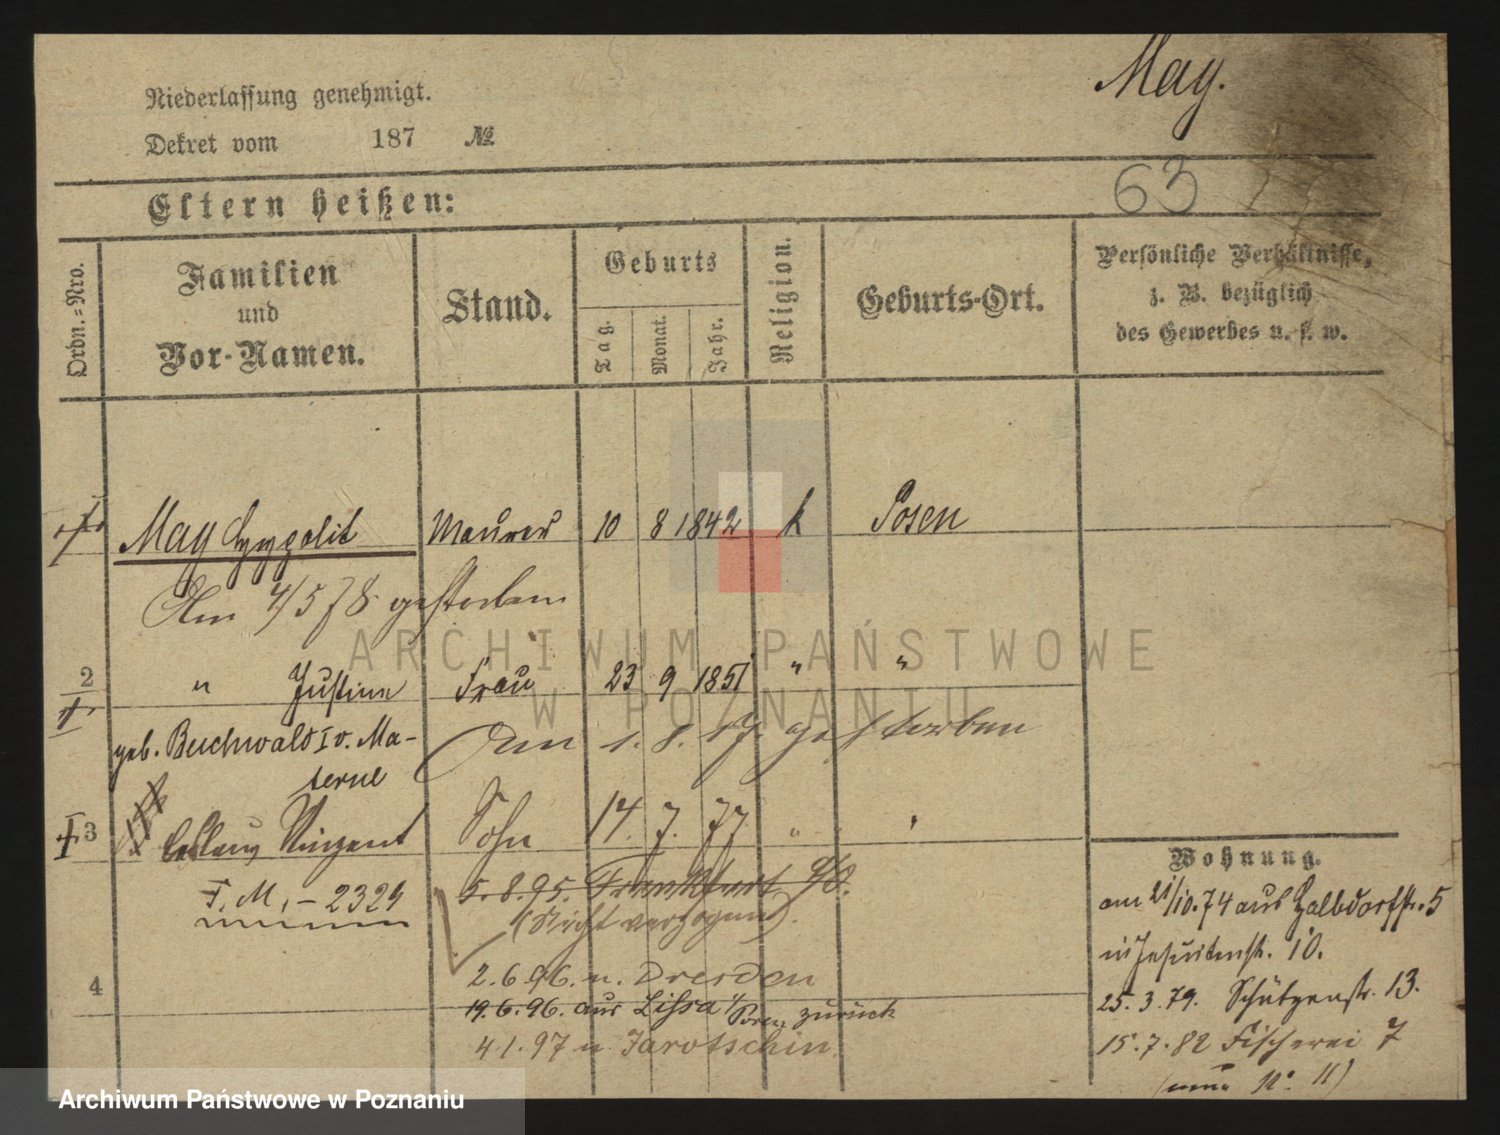 May.
Niederlassung genehmigt.
Dekret vom 187 №
63
Eltern heißen:
Ordn.=Nro.
Familien und Vor-Namen.
Stand.
Geburts
Tag.
Monat.
Jahr.
Religion.
Geburts-Ort.
Persönliche Verhältnisse,
z. B. bezüglich
des Gewerbes u. s. w.
May Hyppolit Maurer 10 8 1842 k Posen
Am 4/5 78 gestorben
2 " Justine Frau 23 9 1851 " "
geb. Buchwald I v. Ma-
terne
Am 1. 8. gestorben
3 Vinzent Sohn 14. 7. 77 "
F. M, - 2329
5.8.95. Frankfurt a/O.
(Nicht verzogen).
2.6.96. n. Dresden
4
19.6.96. aus Lissa i/Posen zurück
4.1.97 n. Jarotschin
Wohnung.
am 21/10.74 aus Halbdorfstr. 5
in Jesuitenstr. 10.
25.3.79. Schützenstr. 13.
15.7.82 Fischerei 7
(neue No. 11)
ARCHIWUM PAŃSTWOWE
W POZNANIU
Archiwum Państwowe w Poznaniu